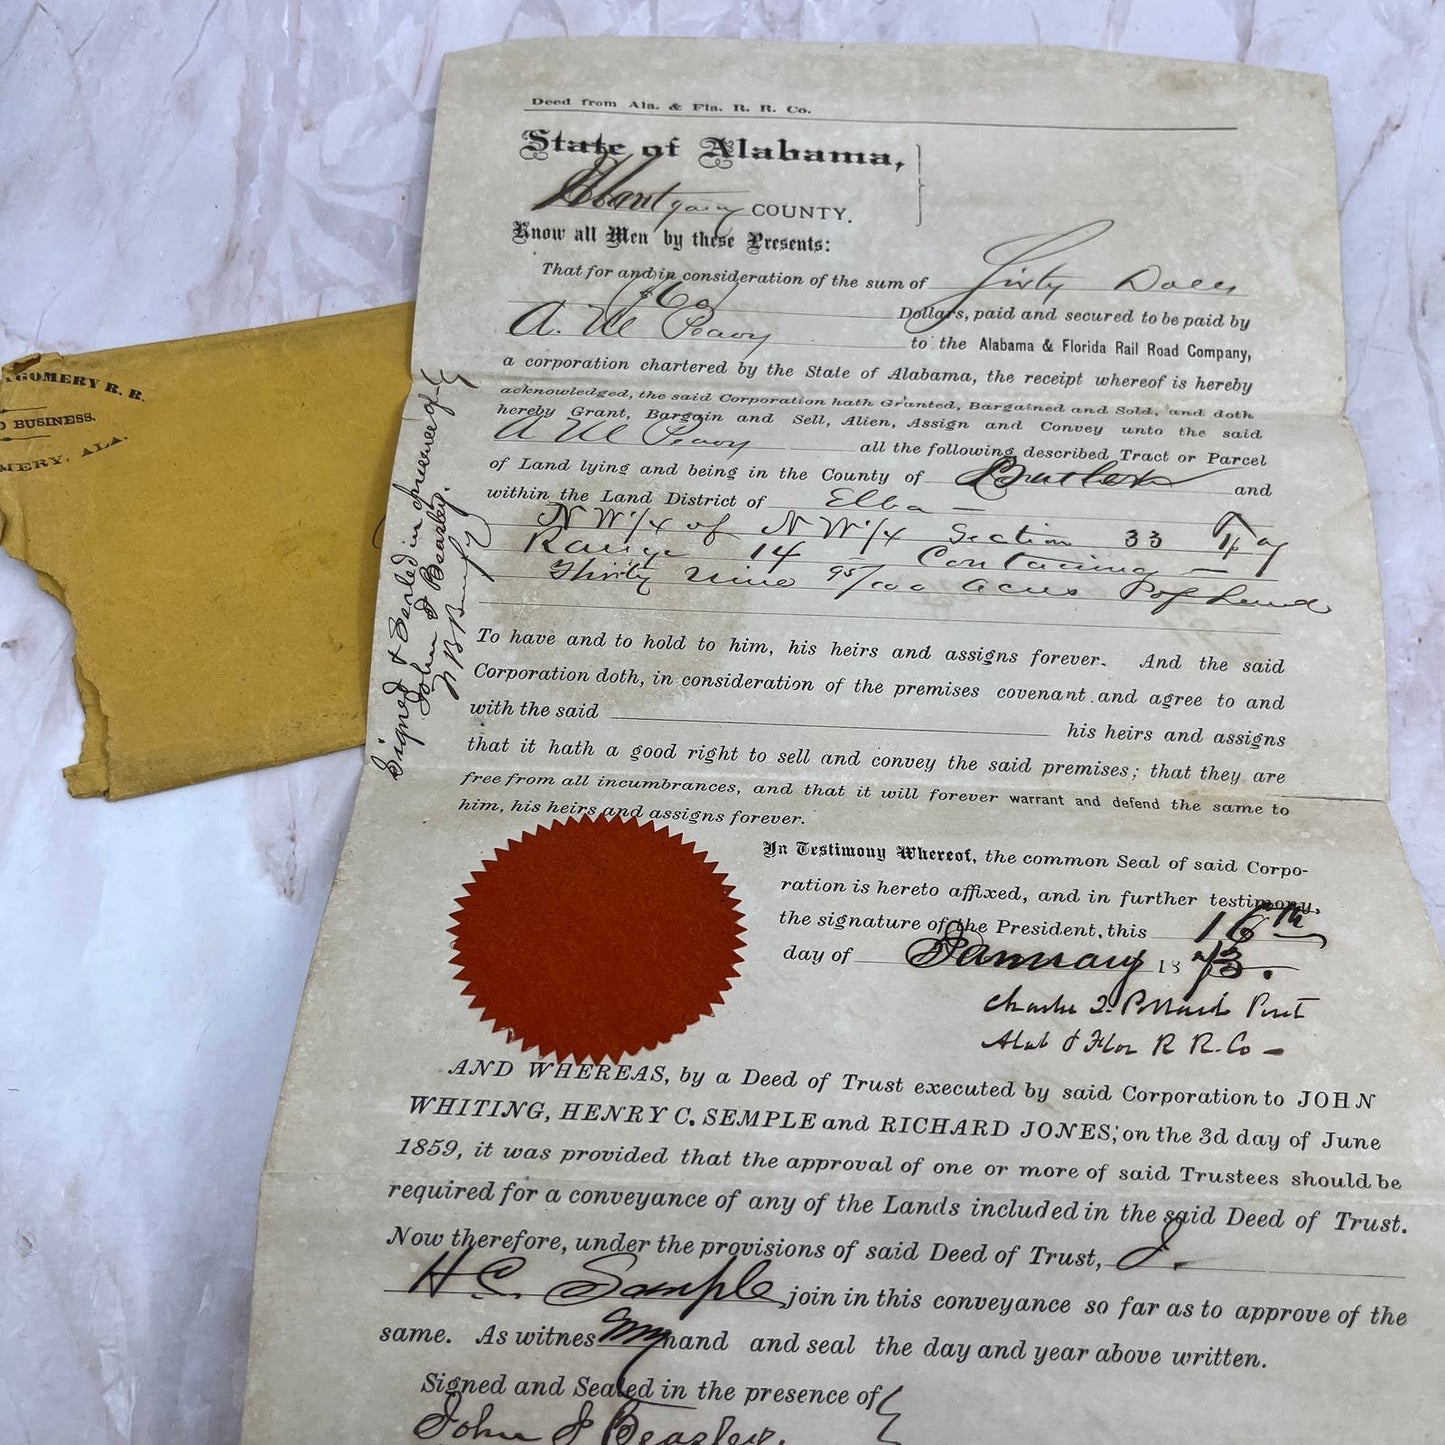 Deed from Ala. & Fla. R. R. Co.
State of Alabama,
Montgomery COUNTY.
Know all Men by these Presents:
That for and in consideration of the sum of Sixty Dolls
(60) Dollars, paid and secured to be paid by
A. M Peavy to the Alabama & Florida Rail Road Company,
a corporation chartered by the State of Alabama, the receipt whereof is hereby
acknowledged, the said Corporation hath Granted, Bargained and Sold, and doth
hereby Grant, Bargain and Sell, Alien, Assign and Convey unto the said
A M Peavy all the following described Tract or Parcel
of Land lying and being in the County of Butler and
within the Land District of Elba
N W 1/4 of N W 1/4 Section 33
Range 14 Containing
Thirty Nine 95/100 acres of Land
To have and to hold to him, his heirs and assigns forever. And the said
Corporation doth, in consideration of the premises covenant and agree to and
with the said his heirs and assigns
that it hath a good right to sell and convey the said premises; that they are
free from all incumbrances, and that it will forever warrant and defend the same to
him, his heirs and assigns forever.
In Testimony Whereof, the common Seal of said Corpo-
ration is hereto affixed, and in further testimony,
the signature of the President, this 16th
day of January 1873.
Charles T. Pollard Prest
Alab & Flor R R. Co
AND WHEREAS, by a Deed of Trust executed by said Corporation to JOHN
WHITING, HENRY C. SEMPLE and RICHARD JONES, on the 3d day of June
1859, it was provided that the approval of one or more of said Trustees should be
required for a conveyance of any of the Lands included in the said Deed of Trust.
Now therefore, under the provisions of said Deed of Trust, I.
H. C. Semple join in this conveyance so far as to approve of the
same. As witness my hand and seal the day and year above written.
Signed and Sealed in the presence of
John J Beasley.
Signed & Sealed in presence of
John J Beasley.
GOMERY R. R.
BUSINESS.
MERY, ALA.